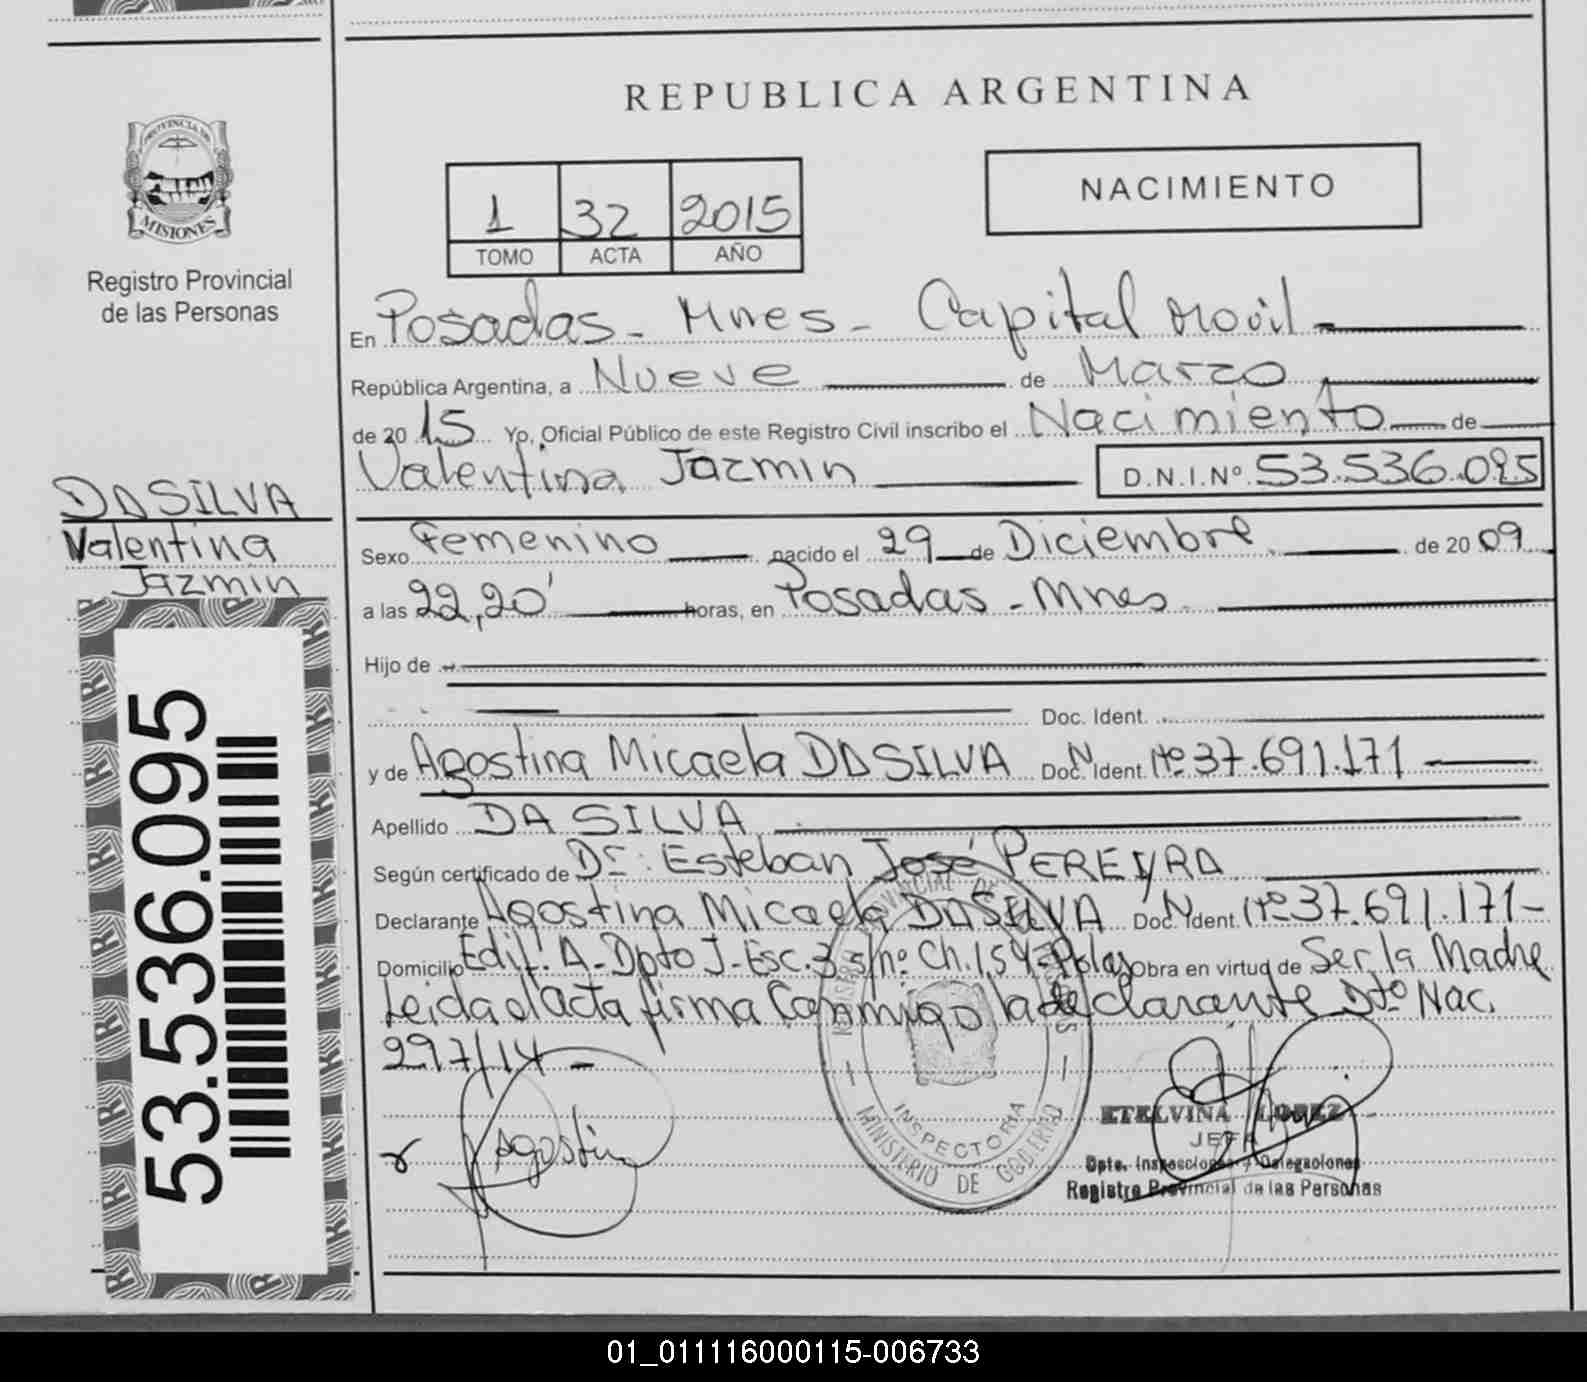 REPUBLICA ARGENTINA
PROVINCIA DE
MISIONES
Registro Provincial
de las Personas
1 32 2015
TOMO ACTA AÑO
NACIMIENTO
En Posadas - Mnes - Capital Movil
República Argentina, a Nueve de Marzo
de 20 15 Yo, Oficial Público de este Registro Civil inscribo el Nacimiento de
Valentina Jazmin D.N.I.Nº 53.536.095
DA SILVA
Valentina
Jazmin
Sexo Femenino nacido el 29 de Diciembre de 20 09
a las 22,20' horas, en Posadas - Mnes
Hijo de
Doc. Ident.
y de Agostina Micaela DA SILVA Doc. Ident. N Nº 37.691.171
Apellido DA SILVA
Según certificado de Dr. Esteban José PEREYRA
Declarante Agostina Micaela DA SILVA Doc. Ident. N Nº 37.691.171-
Domicilio Edif. A - Dpto J - Esc. 3 s/nº Ch. 154 - Pdas Obra en virtud de Ser la Madre
Leida el Acta firma Conmigo la declarante Dto Nac.
297/14 -
53.536.095
Agostina
REGISTRO PROVINCIAL DE LAS PERSONAS
INSPECTORIA
MINISTERIO DE GOBIERNO
ETELVINA LOPEZ
JEFA
Dpto. Inspecciones y Delegaciones
Registro Provincial de las Personas
01_011116000115-006733